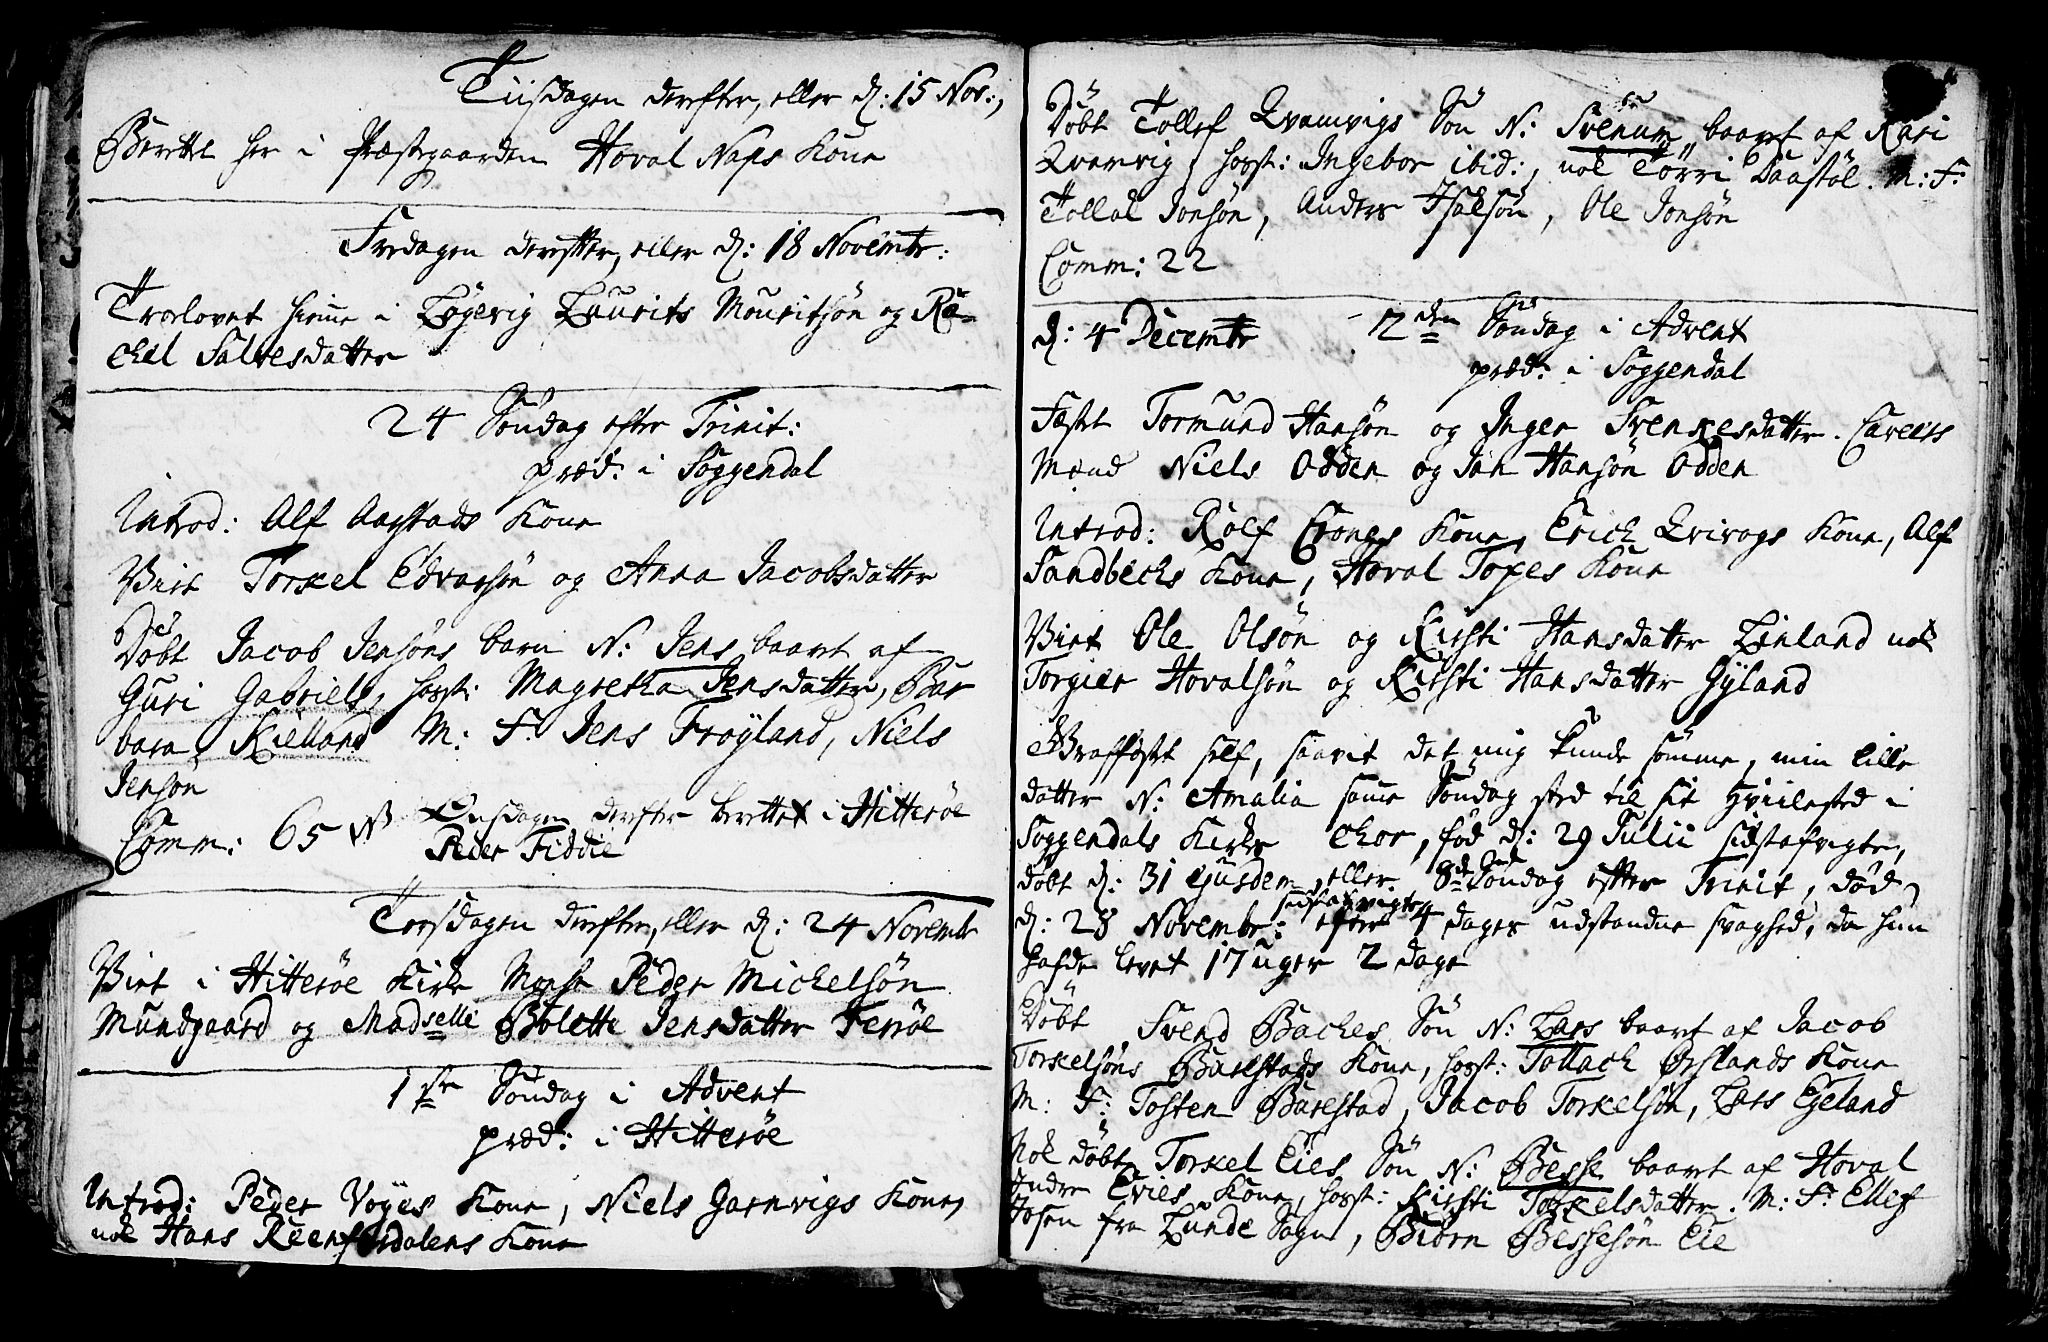 Tiisdagen derefter, eller d: 15 Nov:,
Berettet her i Præstegaarden Hoval Naps Kone
Fredagen derefter, eller d: 18 Novembr:
Trolovet hiemme i Løgevig Laurits Mouritsøn og Ra-
chel Salvesdatter
24 Søndag efter Trinit:
præd: i Soggendal
Introd: Alf Aagstads Kone
Viet Torkel Edvarsøn og Anna Jacobsdatter
Døbt Jacob Jensøns barn N: Jens baaret af
Guri Gabriels, hosst: Magretha Jensdatter, Bar
bara Kielland M: F: Jens Frøyland, Niels
Jensøn
Comm: 65 NB Onsdagen derefter berettet i Hitterøe
Peder Fiddie
Torsdagen derefter, eller d: 24 Novembr
Viet i Hitterøe Kirke Monsr Peder Michelsøn
Mundgaard og Madselle Bolette Jensdatter Ferrøe
1ste Søndag i Advent
præd: i Hitterøe
Introd: Peder Vøyes Kone, Niels Garnvigs Kone,
nok Hans Reenfierdalens Kone
Døbt Tollef Qvamvigs Søn N: Svenum baaret af Kari
Qvamvig, hosst: Ingebor ibid:, nok Torri Daastøl. M: F:
Tollal Jonsøn, Anders Isalsøn, Ole Jonsøn
Comm: 22
d: 4 Decembr 2den Søndag i Advent
præd: i Soggendal
Fæstet Tormund Hansøn og Inger Svenkesdatter. Caveits
Mænd Niels Odden og Jan Hansøn Odden
Introd: Rolf Erones Kone, Erich Qvivogs Kone, Alf
Sandbechs Kone, Hoval Topes Kone
Viet Ole Olsøn og Kirsti Hansdatter Linland nok
Torgier Hovalsøn og Kirsti Hansdatter Gyland
Graffæstet self, saavit det mig kunde sømme, min lille
datter N: Amalia samme Søndag sted til sit Hviilested i
Soggendals Kirkes Chor, fød d: 29 Julii sidstafvigte,
døbt d: 31 ejusdem, eller 8de Søndag efter Trinit, død
d: 28 Novembr: sidstafvigte efter 4 dages udstandne svaghed, da hun
hafde levet 17 uger 2 dage
Døbt Svend Baches Søn N: Lars baaret af Jacob
Torkelsøns Barstads Kone, hosst: Tollach Ørslands Kone
M: F: Tosten Barestad, Jacob Torkelsøn, Lars Egeland
Nok døbt Torkel Eies Søn N: Besse baaret af Hoval
Indre Eies Kone, hosst: Kirsti Torkelsdatter. M: F: Ellef
Josen fra Lunde Sogn, Biørn Bessesøn Eie